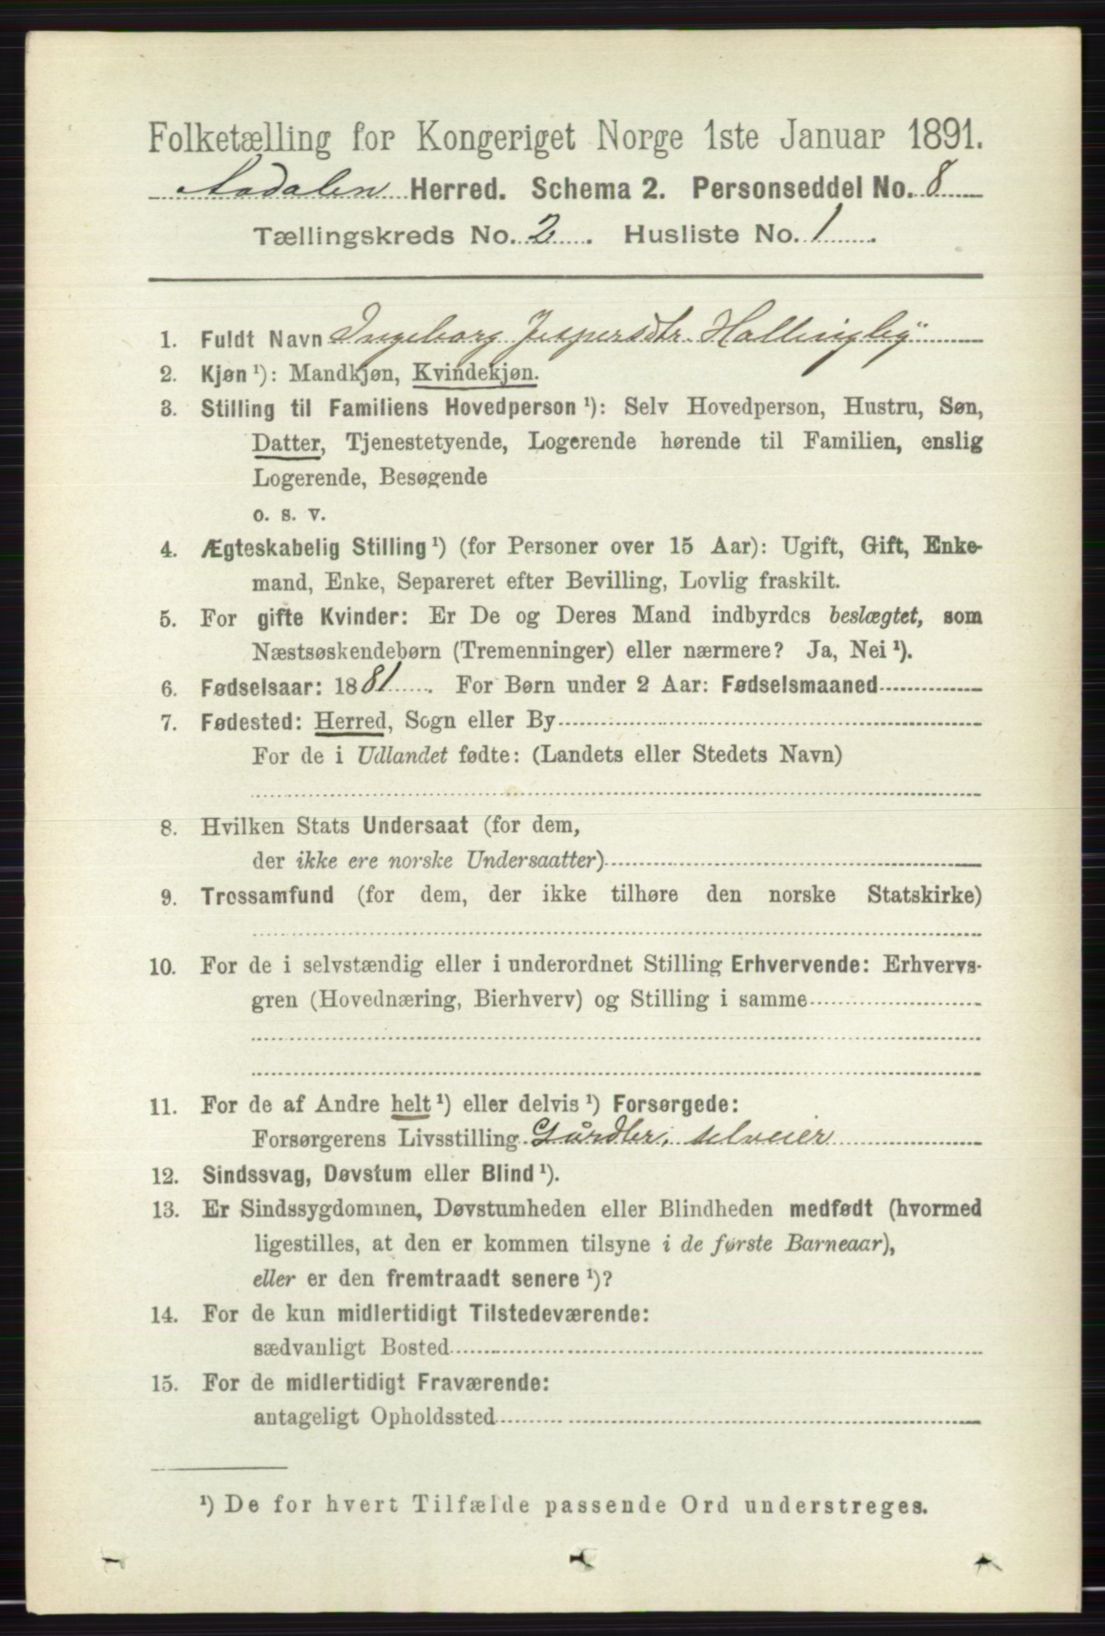 Folketælling for Kongeriget Norge 1ste Januar 1891.
Aadalen Herred. Schema 2. Personseddel No. 8
Tællingskreds No. 2. Husliste No. 1.
1. Fuldt Navn Ingeborg Jespersdtr. Hallingby
2. Kjøn ¹): Mandkjøn, Kvindekjøn.
3. Stilling til Familiens Hovedperson ¹): Selv Hovedperson, Hustru, Søn,
Datter, Tjenestetyende, Logerende hørende til Familien, enslig
Logerende, Besøgende
o. s. v.
4. Ægteskabelig Stilling ¹) (for Personer over 15 Aar): Ugift, Gift, Enke-
mand, Enke, Separeret efter Bevilling, Lovlig fraskilt.
5. For gifte Kvinder: Er De og Deres Mand indbyrdes beslægtet, som
Næstsøskendebørn (Tremenninger) eller nærmere? Ja, Nei ¹).
6. Fødselsaar: 1881. For Børn under 2 Aar: Fødselsmaaned
7. Fødested: Herred, Sogn eller By
For de i Udlandet fødte: (Landets eller Stedets Navn)
8. Hvilken Stats Undersaat (for dem,
der ikke ere norske Undersaatter)
9. Trossamfund (for dem, der ikke tilhøre den norske Statskirke)
10. For de i selvstændig eller i underordnet Stilling Erhvervende: Erhvervs-
gren (Hovednæring, Bierhverv) og Stilling i samme
11. For de af Andre helt ¹) eller delvis ¹) Forsørgede:
Forsørgerens Livsstilling Gårdbr, selveier
12. Sindssvag, Døvstum eller Blind ¹).
13. Er Sindssygdommen, Døvstumheden eller Blindheden medfødt (hvormed
ligestilles, at den er kommen tilsyne i de første Barneaar),
eller er den fremtraadt senere ¹)?
14. For de kun midlertidigt Tilstedeværende:
sædvanligt Bosted
15. For de midlertidigt Fraværende:
antageligt Opholdssted
¹) De for hvert Tilfælde passende Ord understreges.